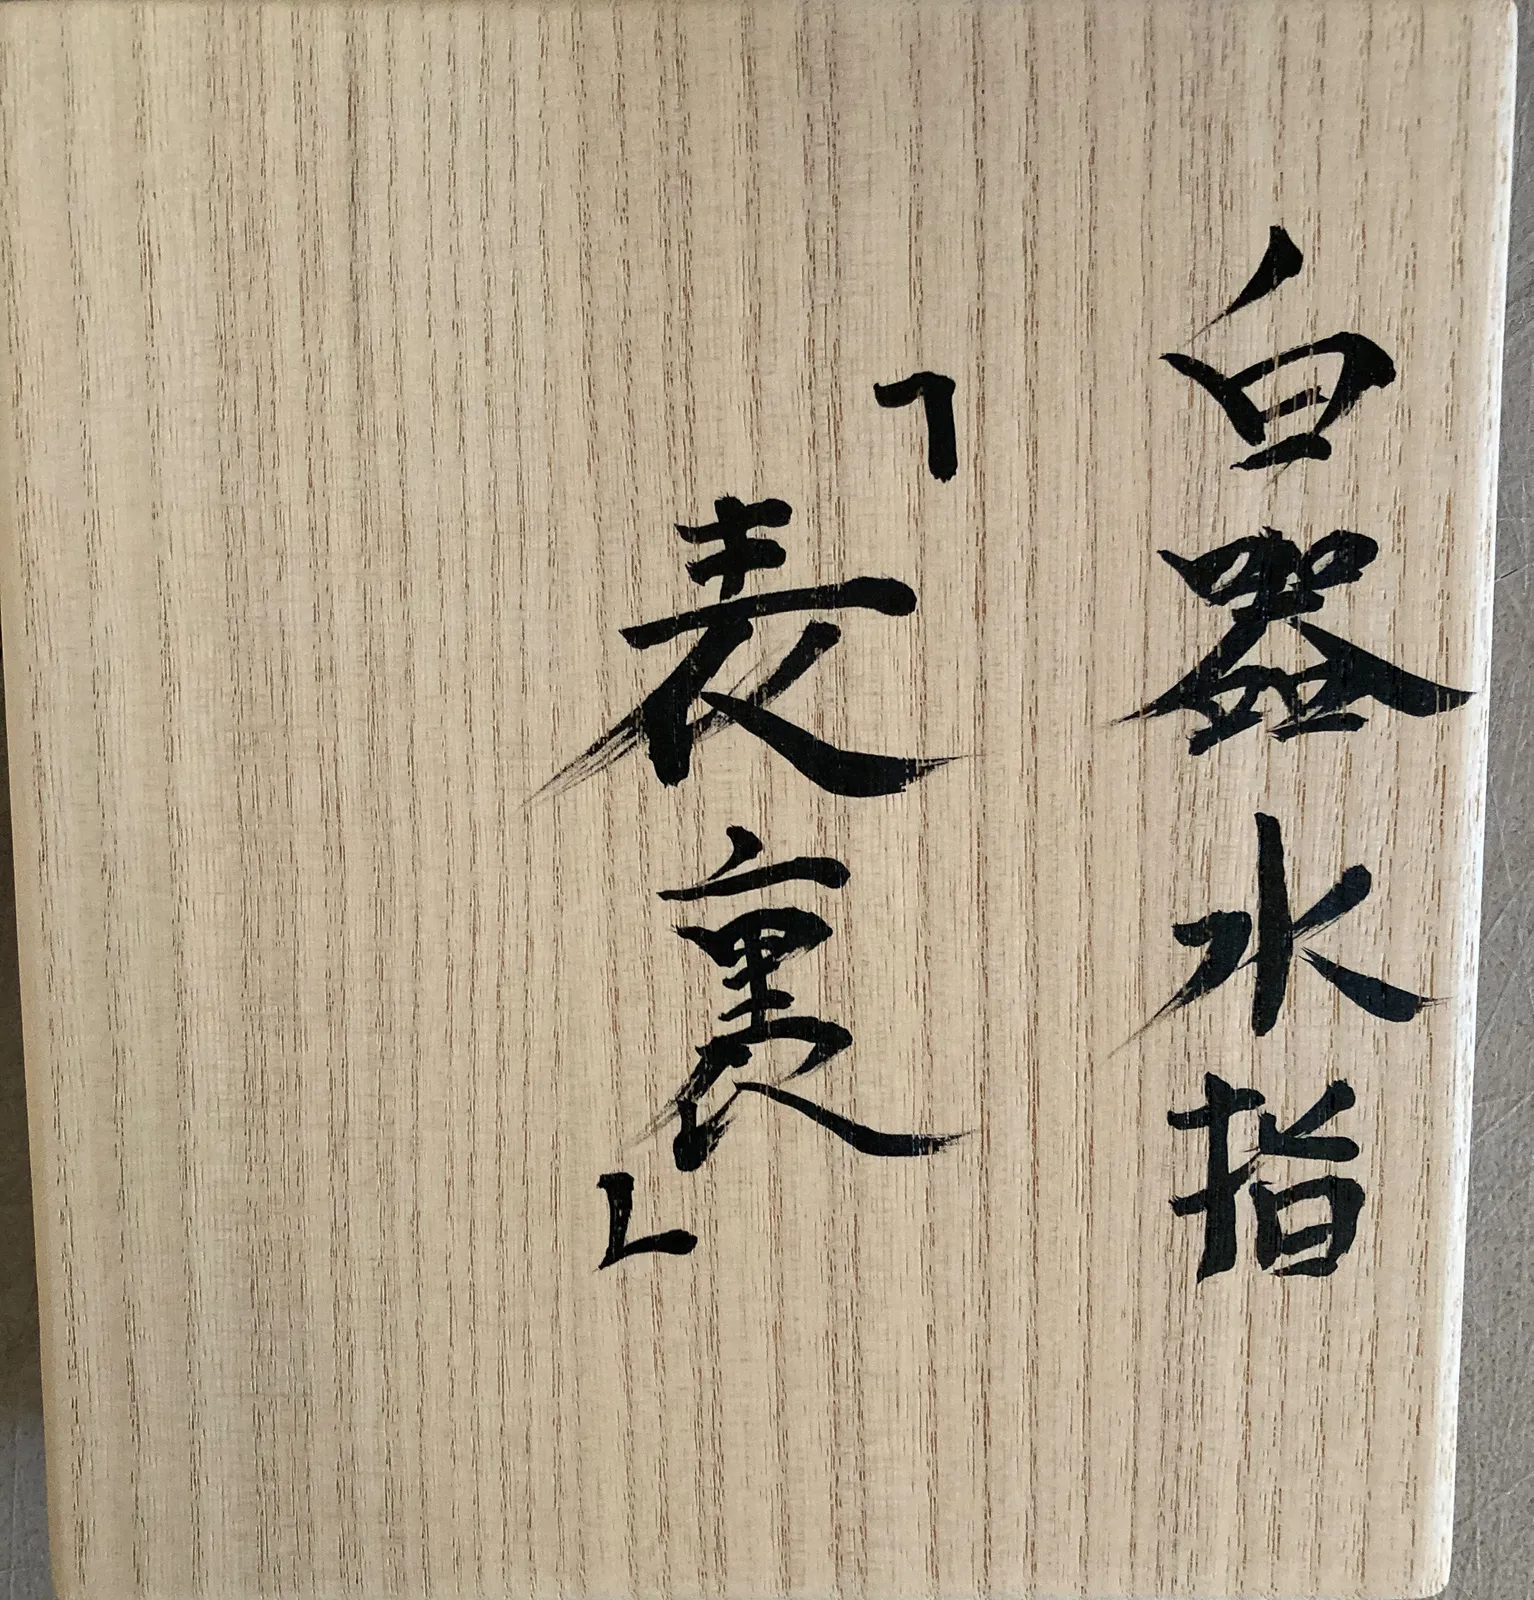 白器水指
「表裏」